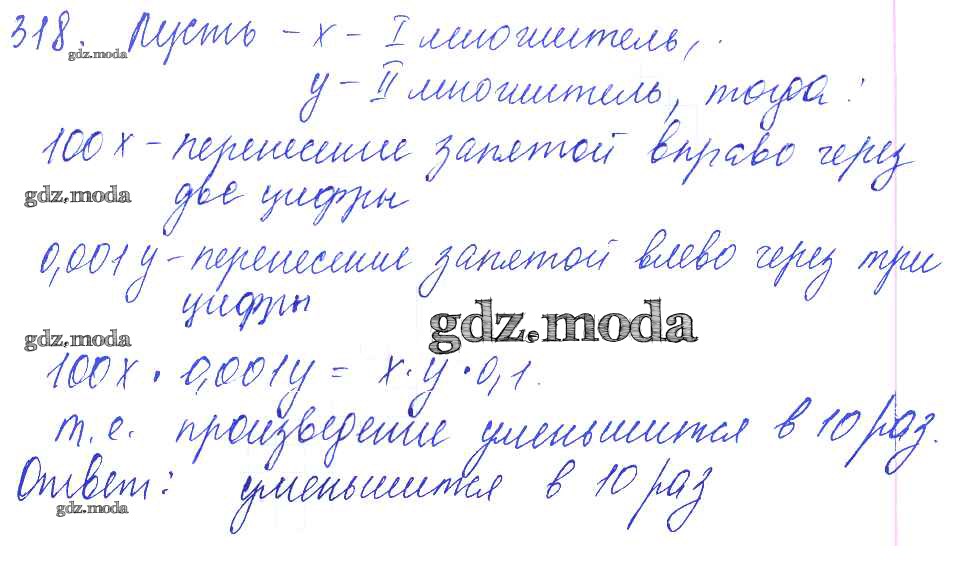 318. Пусть - x - I множитель,
gdz.moda
y - II множитель, тогда:
100x - перенесение запятой вправо через
gdz.moda две цифры
0,001y - перенесение запятой влево через три
цифры
gdz.moda
gdz.moda
100x · 0,001y = x · y · 0,1.
т.е. произведение уменьшится в 10 раз.
Ответ: уменьшится в 10 раз
gdz.moda